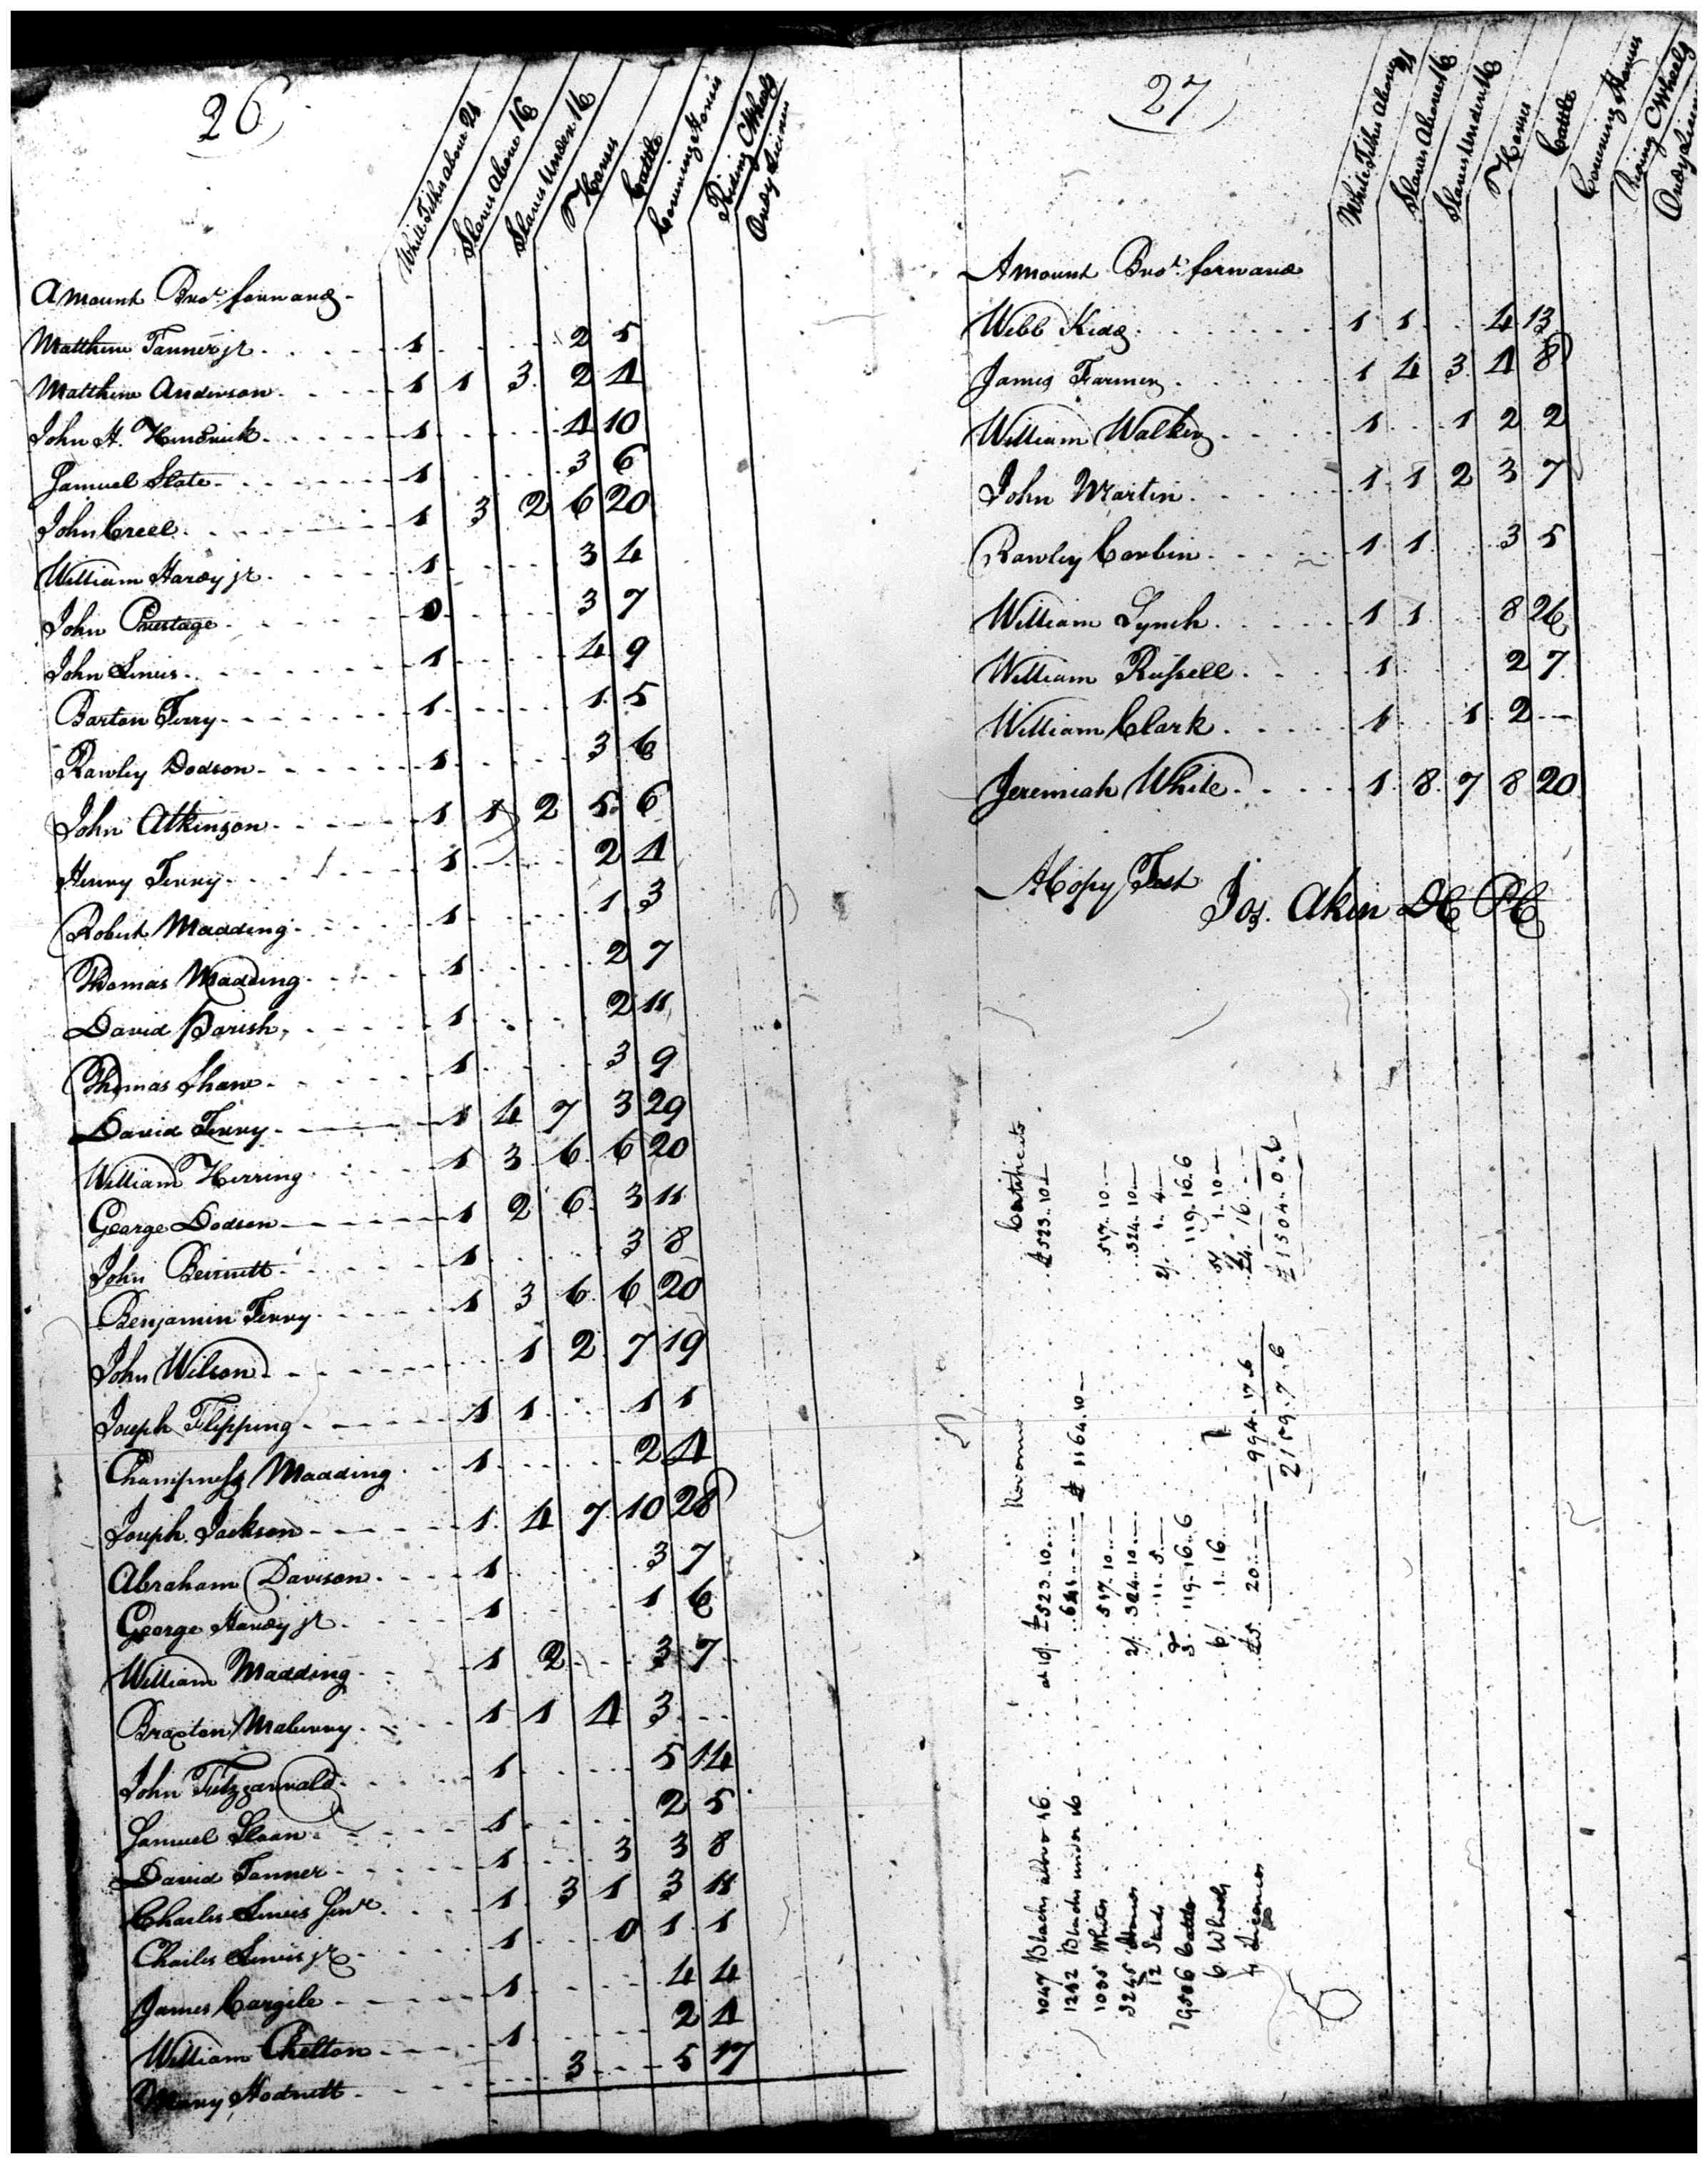 26
White Tithes above 21
Slaves Above 16
Slaves Under 16
Horses
Cattle
Covering Horses
Riding C Wheels
Ordy Licence
Amount Brot. forward
Matthew Tanner jr 1 2 5
Matthew Anderson 1 1 3 2 4
John H. Hendrick 1 4 10
Samuel Slate 1 3 6
John Creel 1 3 2 6 20
William Hardy jr 1 3 4
John Prestage 0 3 7
John Lewis 1 4 9
Barton Terry 1 1 5
Rawley Dodson 1 3 6
John Atkinson 1 1 2 5 6
Henry Terry 1 2 4
Robert Madding 1 1 3
Thomas Madding 1 2 7
David Parish 1 2 11
Thomas Shaw 1 3 9
David Terry 1 4 7 3 29
William Herring 1 3 6 6 20
George Dodson 1 2 6 3 11
John Bennett 1 3 8
Benjamin Terry 1 3 6 6 20
John Wilson 1 2 7 19
Joseph Flipping 1 1 1 1
Champness Madding 1 2 4
Joseph Jackson 1 4 7 10 28
Abraham Davison 1 3 7
George Hardy jr 1 1 6
William Madding 1 2 3 7
Braxton Maberry 1 1 4 3
John Fitzgarrald 1 5 14
Samuel Slaan 1 2 5
David Tanner 1 3 3 8
Charles Lewis Senr 1 3 1 3 11
Charles Lewis jr 1 0 1 1
James Cargile 1 4 4
William Chelton 1 2 4
Mary Hodnett 3 5 17
27
White Tithes Above 21
Slaves Above 16
Slaves Under 16
Horses
Cattle
Covering Horses
Riding C Wheels
Ordy Licence
Amount Brot. forward
Webb Kidd 1 1 4 13
James Farmer 1 4 3 4 8
William Walker 1 1 2 2
John Martin 1 1 2 3 7
Rawley Corbin 1 1 3 5
William Lynch 1 1 8 26
William Russell 1 2 7
William Clark 1 1 2
Jeremiah White 1 8 7 8 20
A Copy Test
Jos. Akin DC PC
Revenue Certificates
1047 Blacks above 16 at 10/ £523..10 £523..10
1282 Blacks under 16 641 £1164.10
1035 Whites 517.10 517.10
3245 Horses 2/ 324..10 324..10
12 Studs 11..5 2/ 1..4
9586 Cattle 3d 119..16..6 119..16..6
6 Wheels 6/ 1..16 5/ 1..10
4 Licences £5 20 994..17..6 £4 16
2159..7..6 £1504..0..6